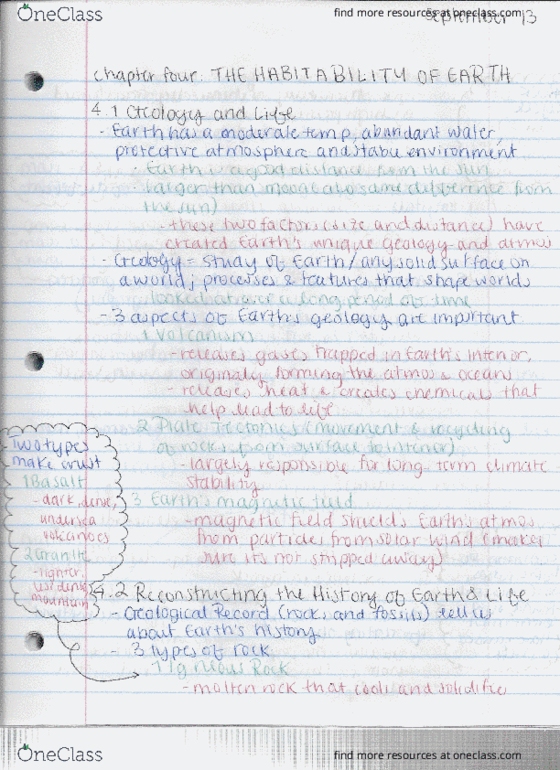 OneClass
find more resources at oneclass.com
September 13
chapter four: THE HABITABILITY OF EARTH
4.1 Geology and Life
- Earth has a moderate temp, abundant water,
protective atmosphere and stable environment
- Earth is a good distance from the sun
- larger than moon (also same difference from
the sun)
- these two factors (size and distance) have
created Earth's unique geology and atmos
- Geology = study of Earth/any solid surface on
a world; processes & features that shape worlds
looked at over a long period of time
- 3 aspects of Earth's geology are important
1 Volcanism
- releases gases trapped in Earth's interior,
originally forming the atmos & oceans
- releases heat & creates chemicals that
help lead to life
2 Plate Tectonics (movement & recycling
of rocks from surface to interior)
- largely responsible for long term climate
stability
3 Earth's magnetic field
- magnetic field shields Earth's atmos
from particles from solar wind (makes
sure it's not stripped away)
Two types
make crust
1 Basalt
- dark, dense,
undersea
volcanoes
2 Granite
- lighter,
less dense,
mountain
4.2 Reconstructing the History of Earth & Life
- Geological Record (rocks and fossils) tell us
about Earth's history
- 3 types of rock
1 Igneous Rock
- molten rock that cools and solidifies
OneClass
find more resources at oneclass.com